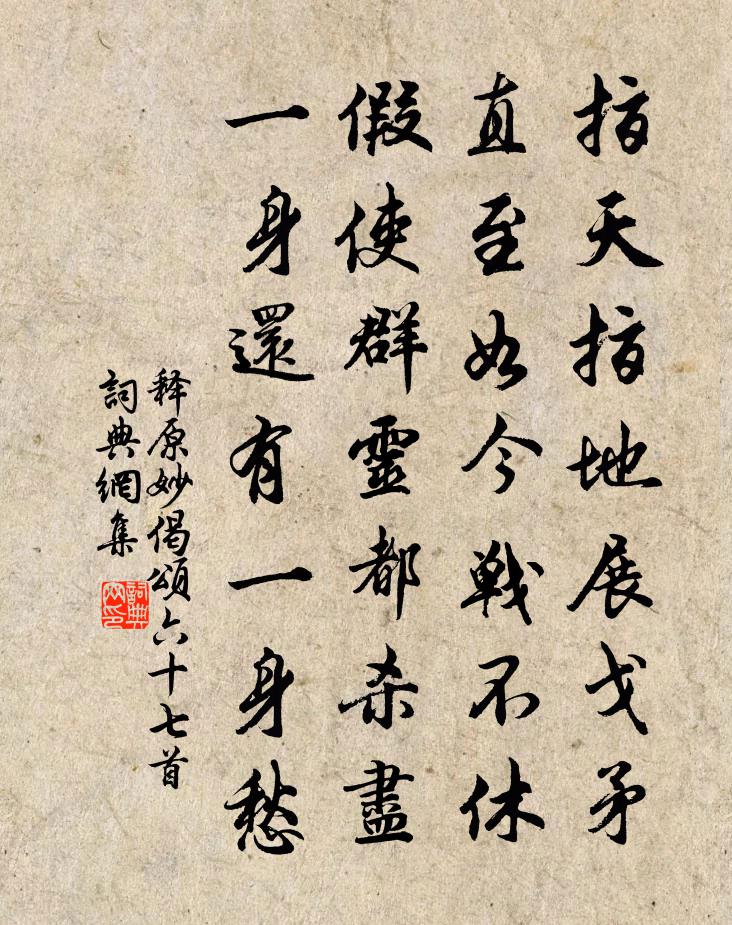 指天指地展戈矛
直至如今戦不休
假使群靈都杀盡
一身還有一身愁
释原妙偈頌六十七首
詞典網集
詞典網印